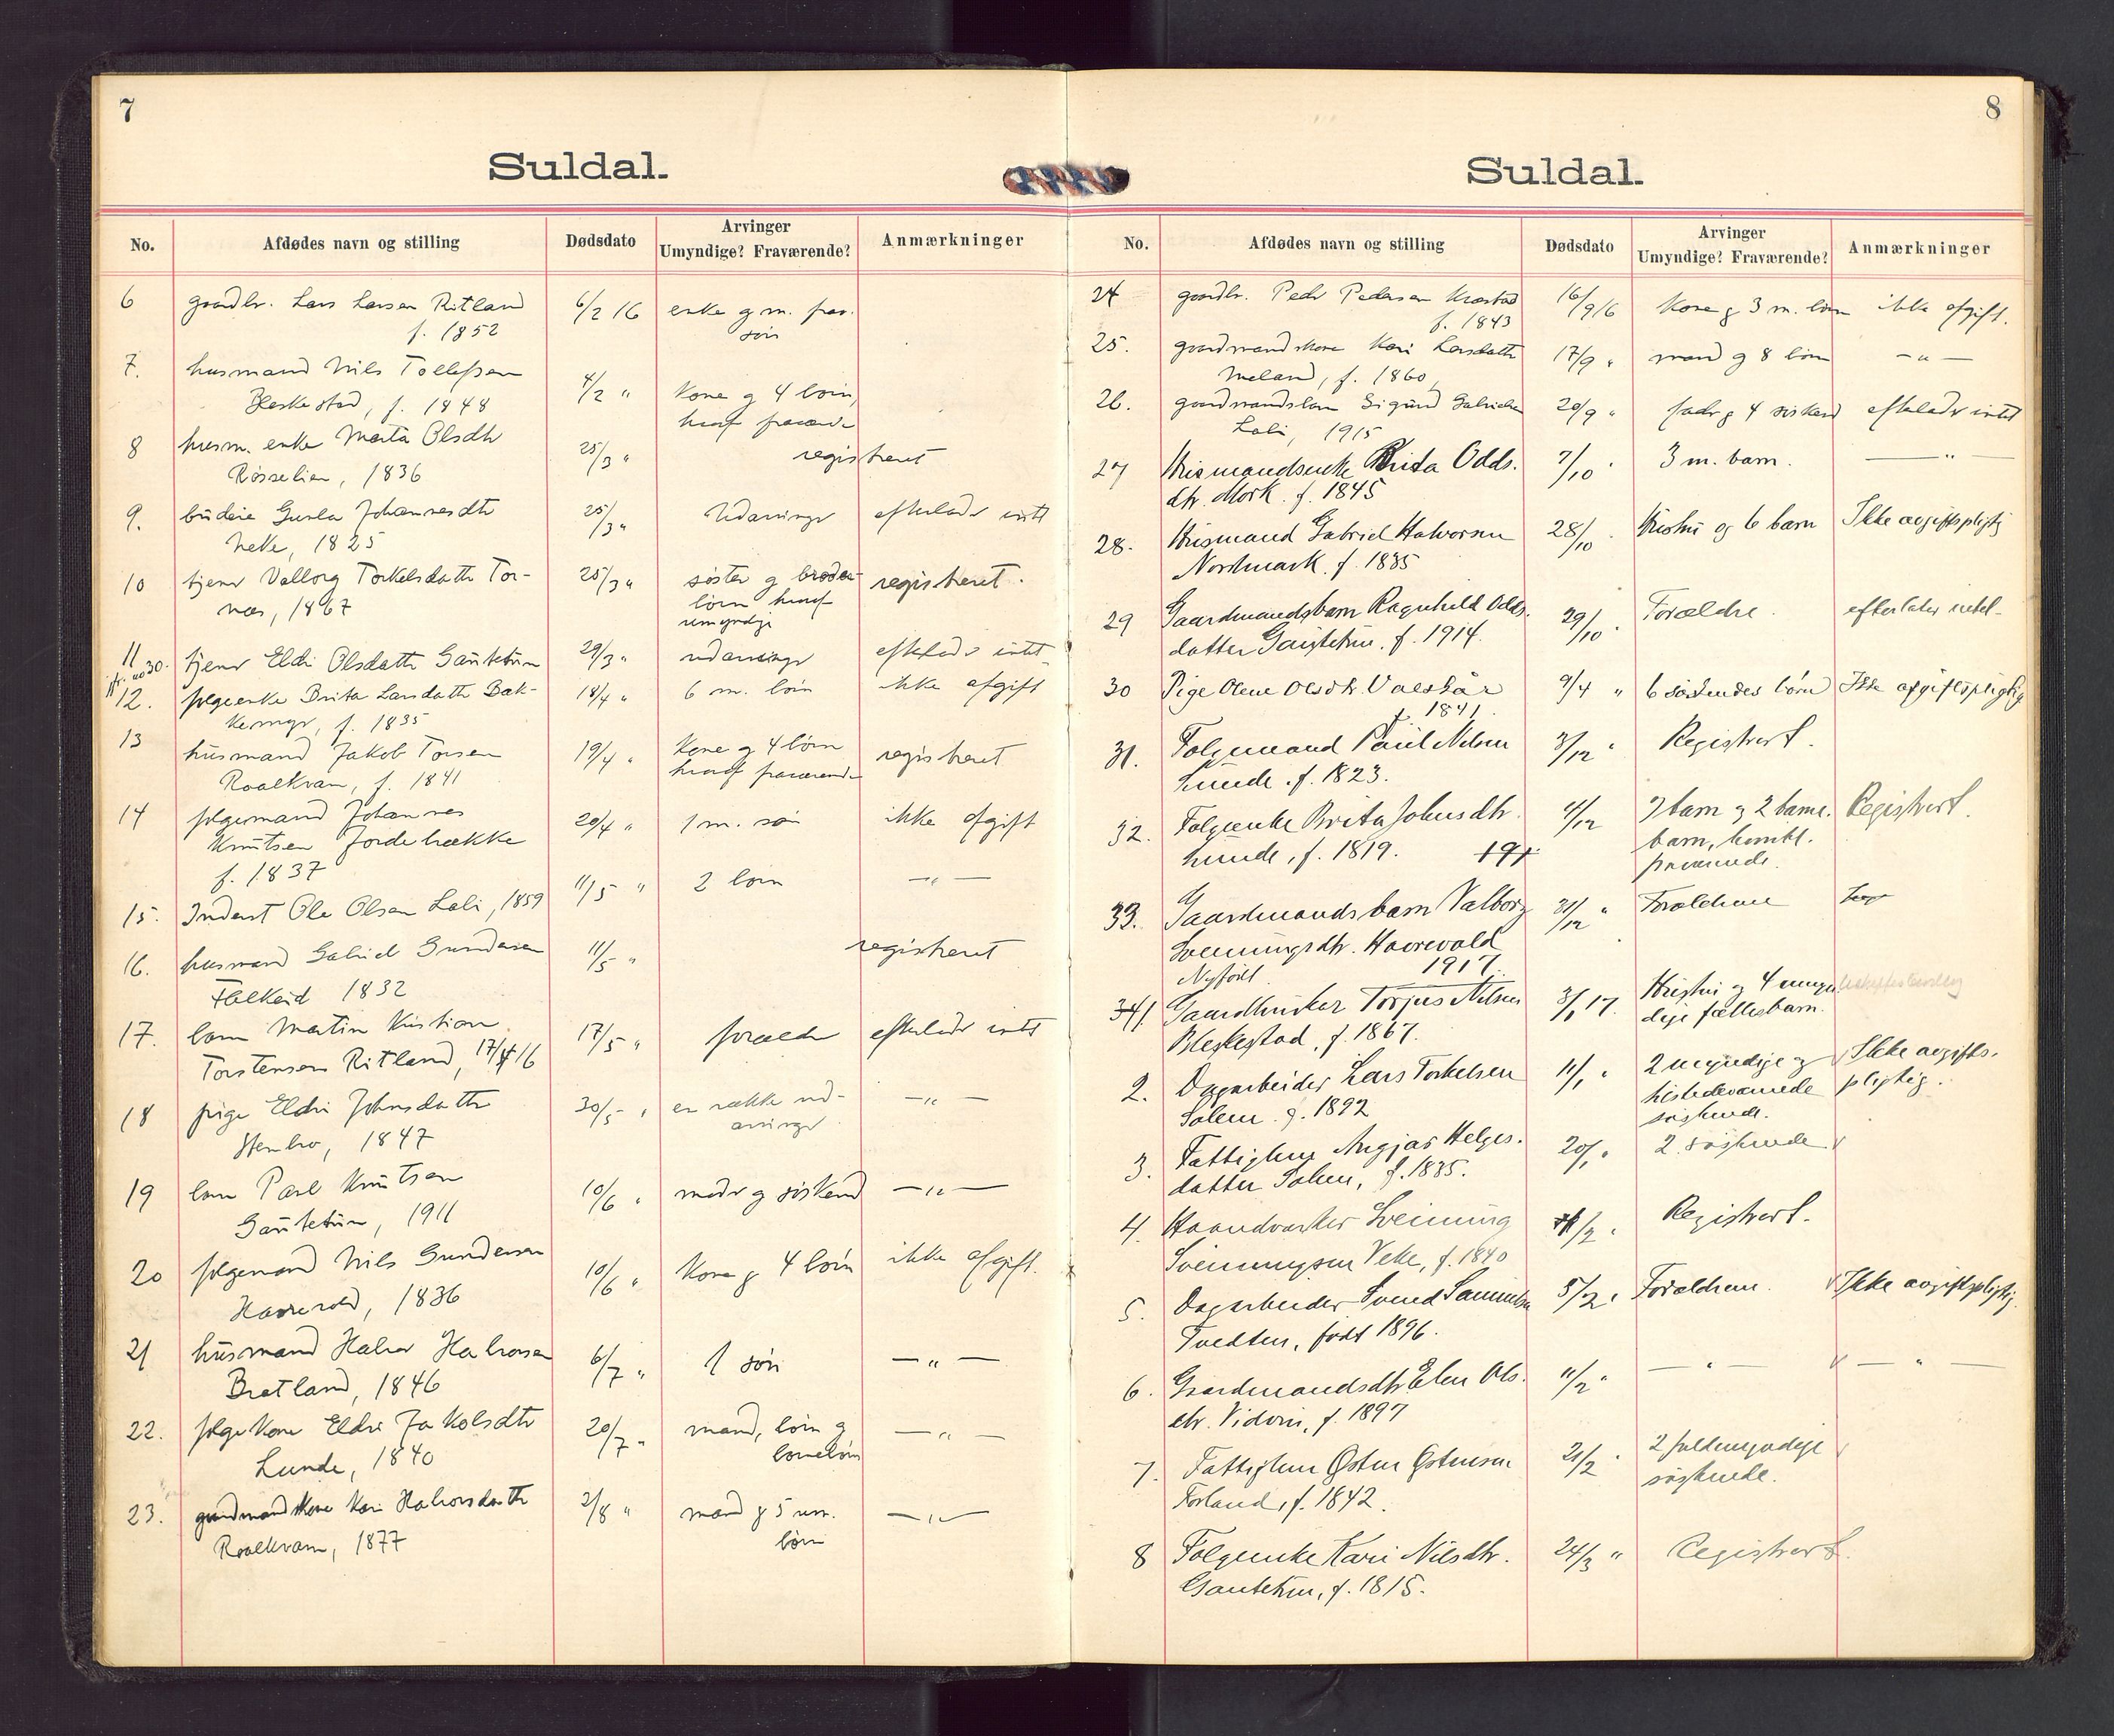 7
Suldal.
No. Afdødes navn og stilling Dødsdato Arvinger Umyndige? Fraværende? Anmærkninger
6 gaardbr. Lars Larsen Ritland 6/2 16 enke g m. frav.
f. 1852 søn
7. husmand Nils Tollefsen 4/2 " Kone g 4 børn,
Bleskestad, f. 1848 hvoraf fraværende
8 husm. enke Marta Olsdtr 25/3 " registreret
Røsselien, 1836
9. budeie Gunla Johannesdtr 25/3 " Udarvinger efterlader intet
Veke, 1825
10 tjener Valborg Torkelsdatter Tor- 25/3 " søster g broder- registreret.
næs, 1867 børn hvoraf
umyndige
11 tjener Eldri Olsdatter Gautetun 29/3 " udarvinger efterlader intet
jfr. no 30.
12. følgeenke Brita Larsdatter Bak- 18/4 " 6 m. børn ikke afgift
kemyr, f. 1835
13 husmand Jakob Torsen 19/4 " Kone g 4 børn registreret
Roalkvam, f. 1841 hvoraf fraværende
14 følgemand Johannes 20/4 " 1 m. søn ikke afgift
Knutsen Fordebrække
f. 1837
15. Inderst Ole Olsen Lali, 1859 11/5 " 2 børn — " —
16. husmand Gabriel Gundersen 11/5 " registreret
Falkeid 1832
17. barn Martin Kristian 17/5 " forældre efterlader intet
Torstensen Ritland, 17/4 16
18 pige Eldri Johnsdatter 30/5 " en række ud- — " —
Stenbro, 1847 arvinger
19 barn Paul Knutsen 10/6 " moder g søskend — " —
Gautetun, 1911
20 følgemand Nils Gundersen 10/6 " Kone g 4 børn ikke afgift.
Havrevold, 1836
21 husmand Halvor Halvorsen 6/7 " 1 søn — " —
Bratland, 1846
22. følgekone Eldri Jakobsdtr 20/7 " mand, børn g — " —
Lunde, 1840 barnebørn
23. gaardmandskone Kari Halvorsdatter 2/8 " mand g 5 um. — " —
Roalkvam, 1877 børn
8
Suldal.
No. Afdødes navn og stilling Dødsdato Arvinger Umyndige? Fraværende? Anmærkninger
24 gaardbr. Peder Pedersen 16/9 16 Kone g 3 m. børn ikke afgift.
f. 1843
25. gaardmandskone Kari Larsdatter 17/9 " mand g 8 børn — " —
Meland, f. 1860
26. gaardmandsbarn Sigurd Gabrielsen 20/9 " fader g 4 søskend efterlader intet
Lali, 1915
27 Husmandsenke Brita Odds. 7/10 " 3 m. barn. — " —
dtr. Mork. f. 1845
28. Husmand Gabriel Halvorsen 28/10 " Hustru og 6 barn Ikke avgiftspligtig
Nordmark. f. 1835
29 Gaardmandsbarn Ragnhild Odds. 29/10 " Forældre. efterlater intet.
datter Gautetun. f. 1914.
30 Pige Olene Olsdtr. Valskår 9/4 " 6 søskendes børn Ikke afgiftspligtig
f. 1841.
31. Følgemand Paul Nilsen 3/12 " Registrert.
Lunde. f. 1823.
32. Følgeenke Brita Johnsdtr. 4/12 7 barn og 2 barne. Registrert.
Lunde, f. 1819. 191 barn,
fraværende.
33. Gaardmandsbarn Valborg 31/12 " Forældrene
Sveinungsdtr. Havrevold
Nyfødt 1917.
34 1 Gaardbruker Torjus Nilsen 3/1 17. Hustru og 4 umyn-
Bleskestad, f. 1867. dige fællesbarn.
2. Dagarbeider Lars Torkelsen 11/1 " 2 umyndige og Ikke avgifts.
Solem. f. 1892 tilstedeværende pligtig.
søskende.
3. Fattiglem Angjar Helges. 20/1 " 2 søskende
datter Solem, f. 1835.
4. Haandverker Sveinung /2 " Registrert.
Sveinungsen Veke, f. 1840
5. Dagarbeider Svend Samuelsen 5/2 " Forældrene. Ikke avgiftspligtig.
Tvedten, født 1896.
6. Gaardmandsdtr. Elen Ols. 11/2 " — " — — " —
dtr. Vidvei, f. 1897
7. Fattiglem Østen Østensen 21/2 " 2 fuldmyndige
Førland, f. 1842. søskende.
8 Følgeenke Kari Nilsdtr. 24/3 " Registrert.
Gautetun, f. 1815.